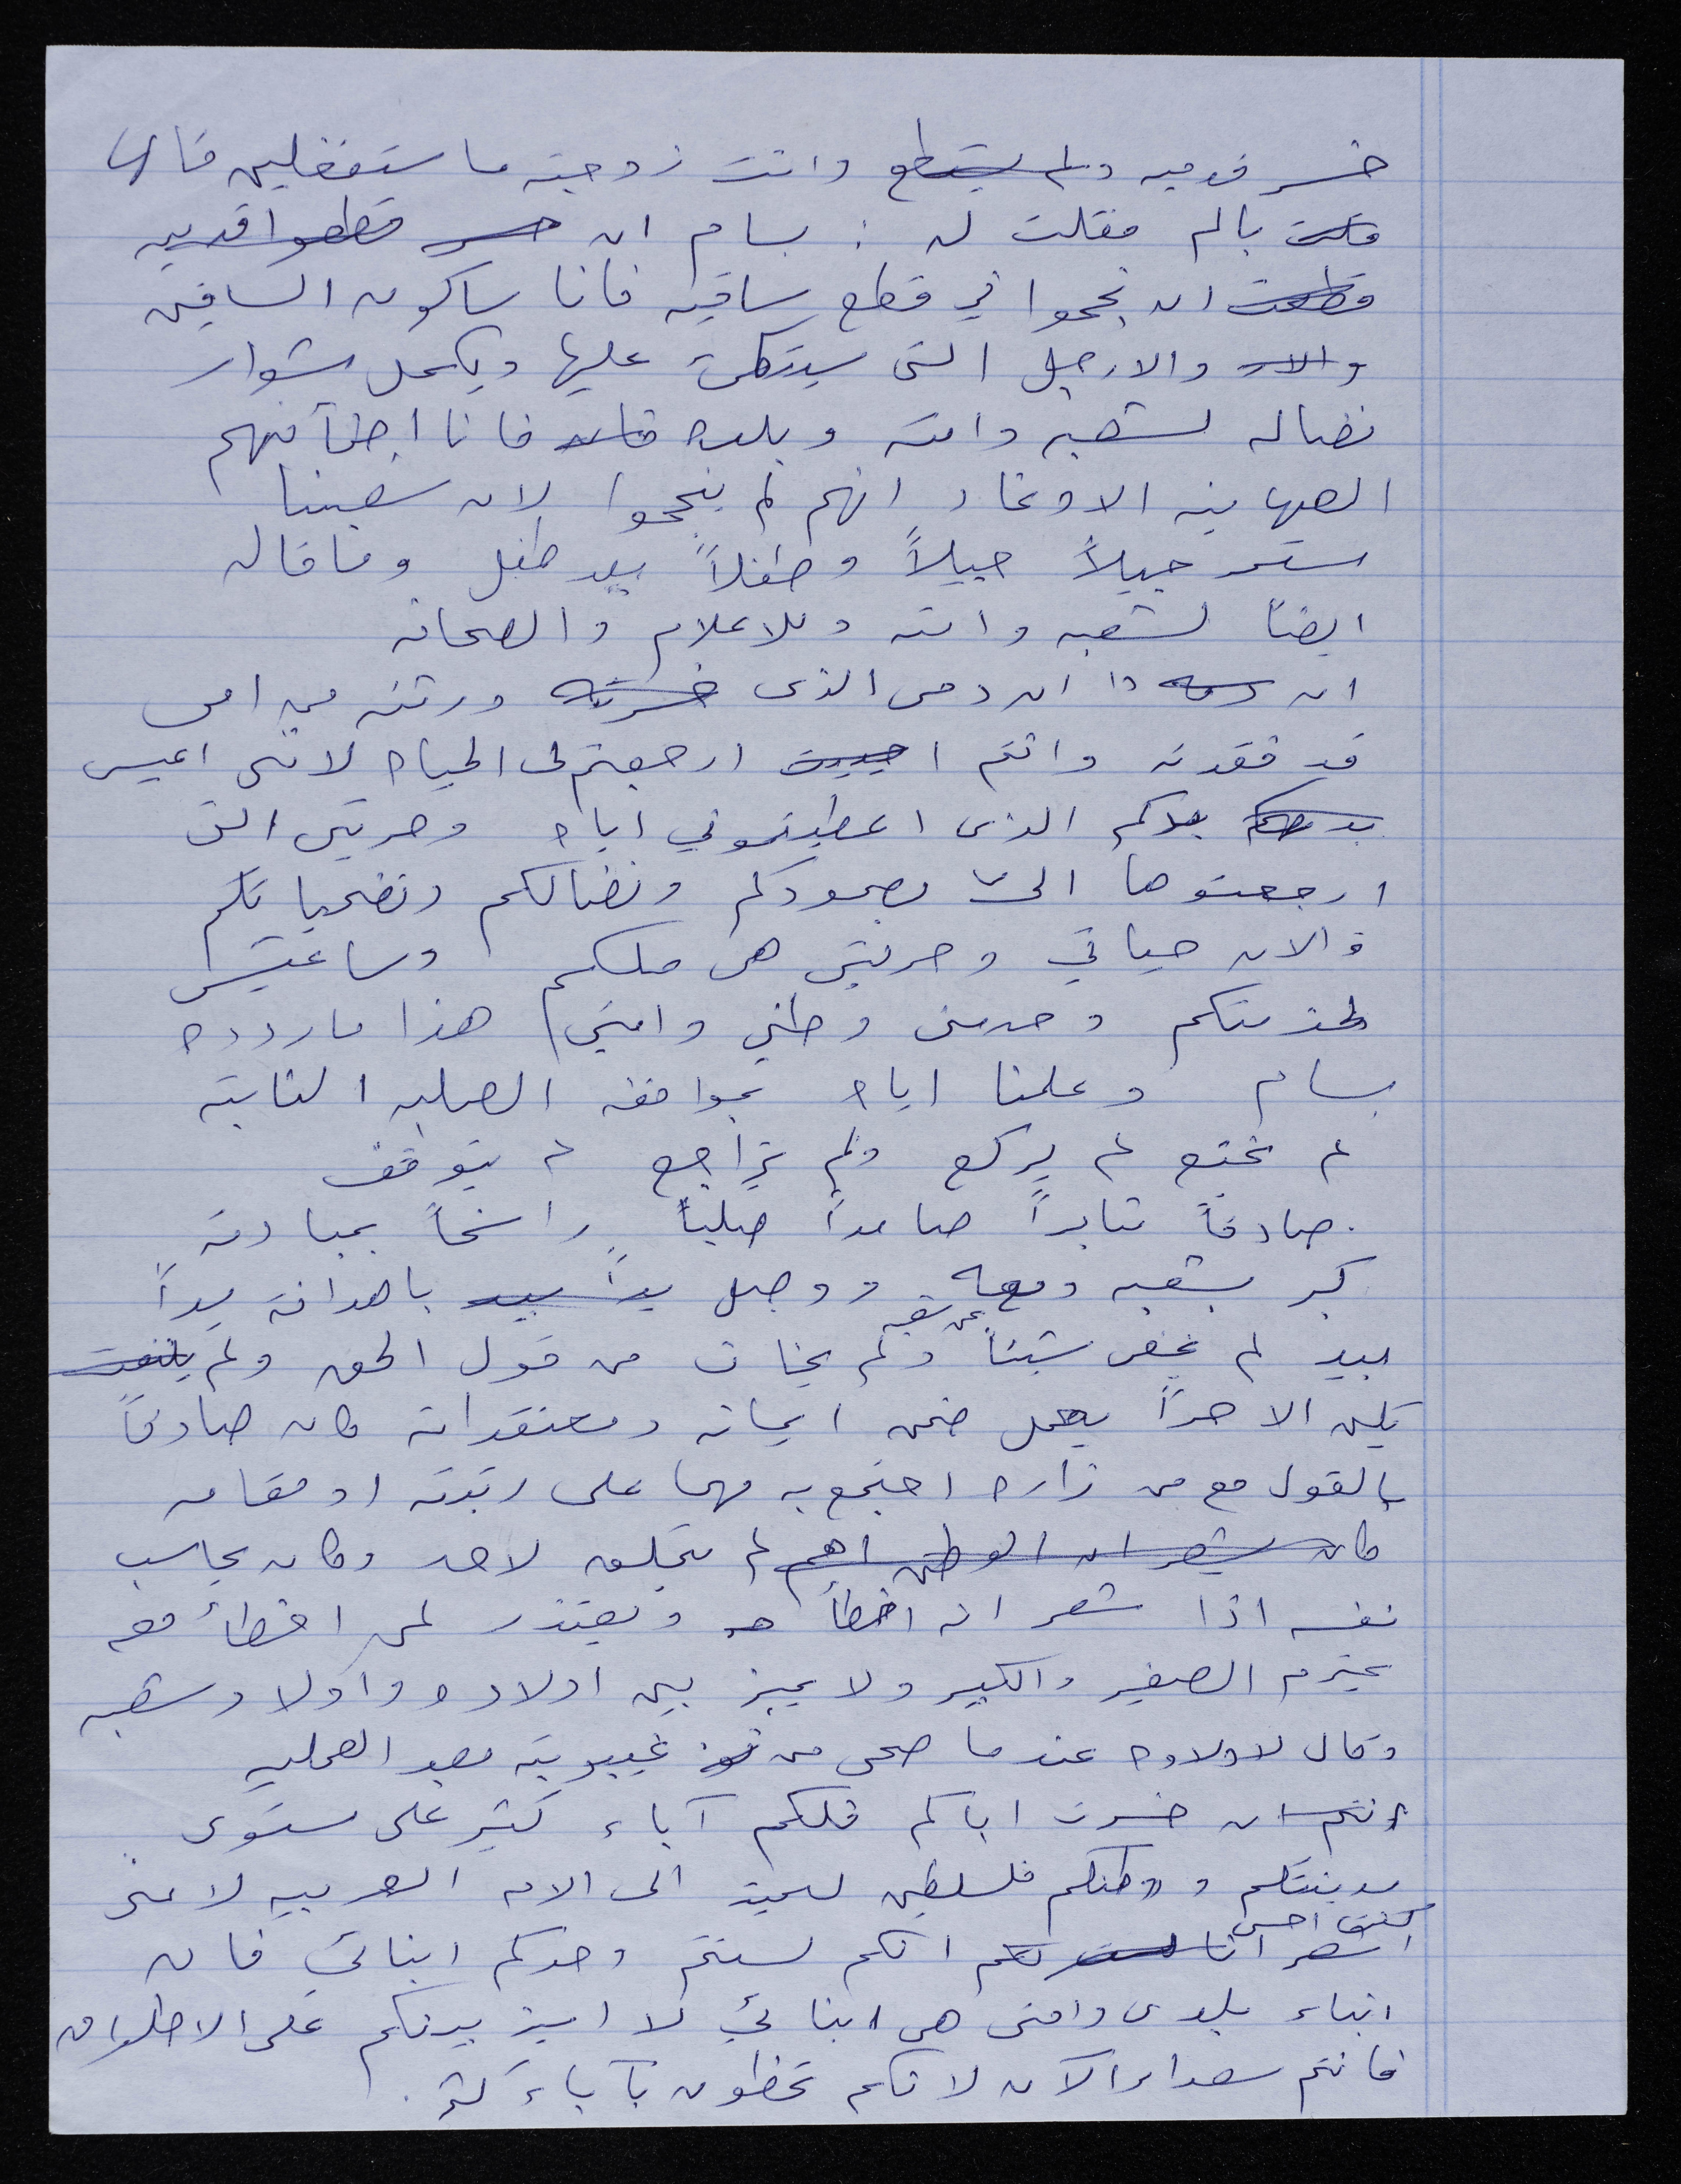 خسر قدميه ولم يستطع وانت زوجته ما ستفعلين قالها
قلت بالم فقلت له : بسام ان خسر قطعوا قدميه
قطعت ان نجحوا في قطع ساقيه فانا ساكون الساقين
والار والارجل التي سيتكئ عليها ويكمل مشوار
نضاله لشعبه وامته وبلده فانا اطمأنهم
الصهاينه الاوغاد انهم لم ينجحوا لان شعبنا
مستمر جيلاً جيلاً وطفلاً بعد طفل وما قاله
ايضاً لشعبه وامته وللاعلام والصحافه
ان دمي اذا ان دمي الذي خسرته ورثته من امي
قد فقدته وانتم احييت ارجعتم لي الحياه لانني اعيش
بدمكم بدمكم الذي اعطيتموني اياه وحريتي التي
ارجعتموها الي بصمودكم ونضالكم وتضحياتكم
فالان حياتي وحريتي هي ملككم وساعيش
لخدمتكم وخدمة وطني وامتي) هذا ما ردده
بسام وعلمنا اياه بمواقفه الصلبه الثابته
لم يخنع لم يركع ولم يتراجع لم يتوقف
. صادقاً ثابراً صامداً صلباً راسخاً بمبادئه
كبر بشعبه ومعه ووصل يداً بيد باهدافه يداً
بيد لم يخفي شيئاً عن شعبه ولم يخاف من قول الحق ولم يلتفت
يكن الا حراً يعمل ضمن ايمانه ومعتقداته كان صادقاً
بالقول مع من زاره اجتمع به مهما على رتبته او مقامه
كان يشعر ان الوطن اهم لم يتملق لاحد وكان يحاسب
نفسه اذا شعر انه اخطأ ويعتذر لمن اخطأ معه
يحترم الصغير والكبير ولا يميز بين اولاده واولاد شعبه
وقال لاولاده عندما صحى من غيبوبته بعد العمليه
انتم ان خسرت اباكم فلكم آباء كثير على مستوى
مدينتكم ووطنكم فلسطين الى الامه العربيه لانني
كنت احس
اشعر انا لست لكم انكم لستم وحدكم ابنائي فان
ابناء بلدي وامتي هي ابنائي لا اميز بينكم على الاطلاق
فانتم سعداء الآن لانكم تحظون بآباء كثر .